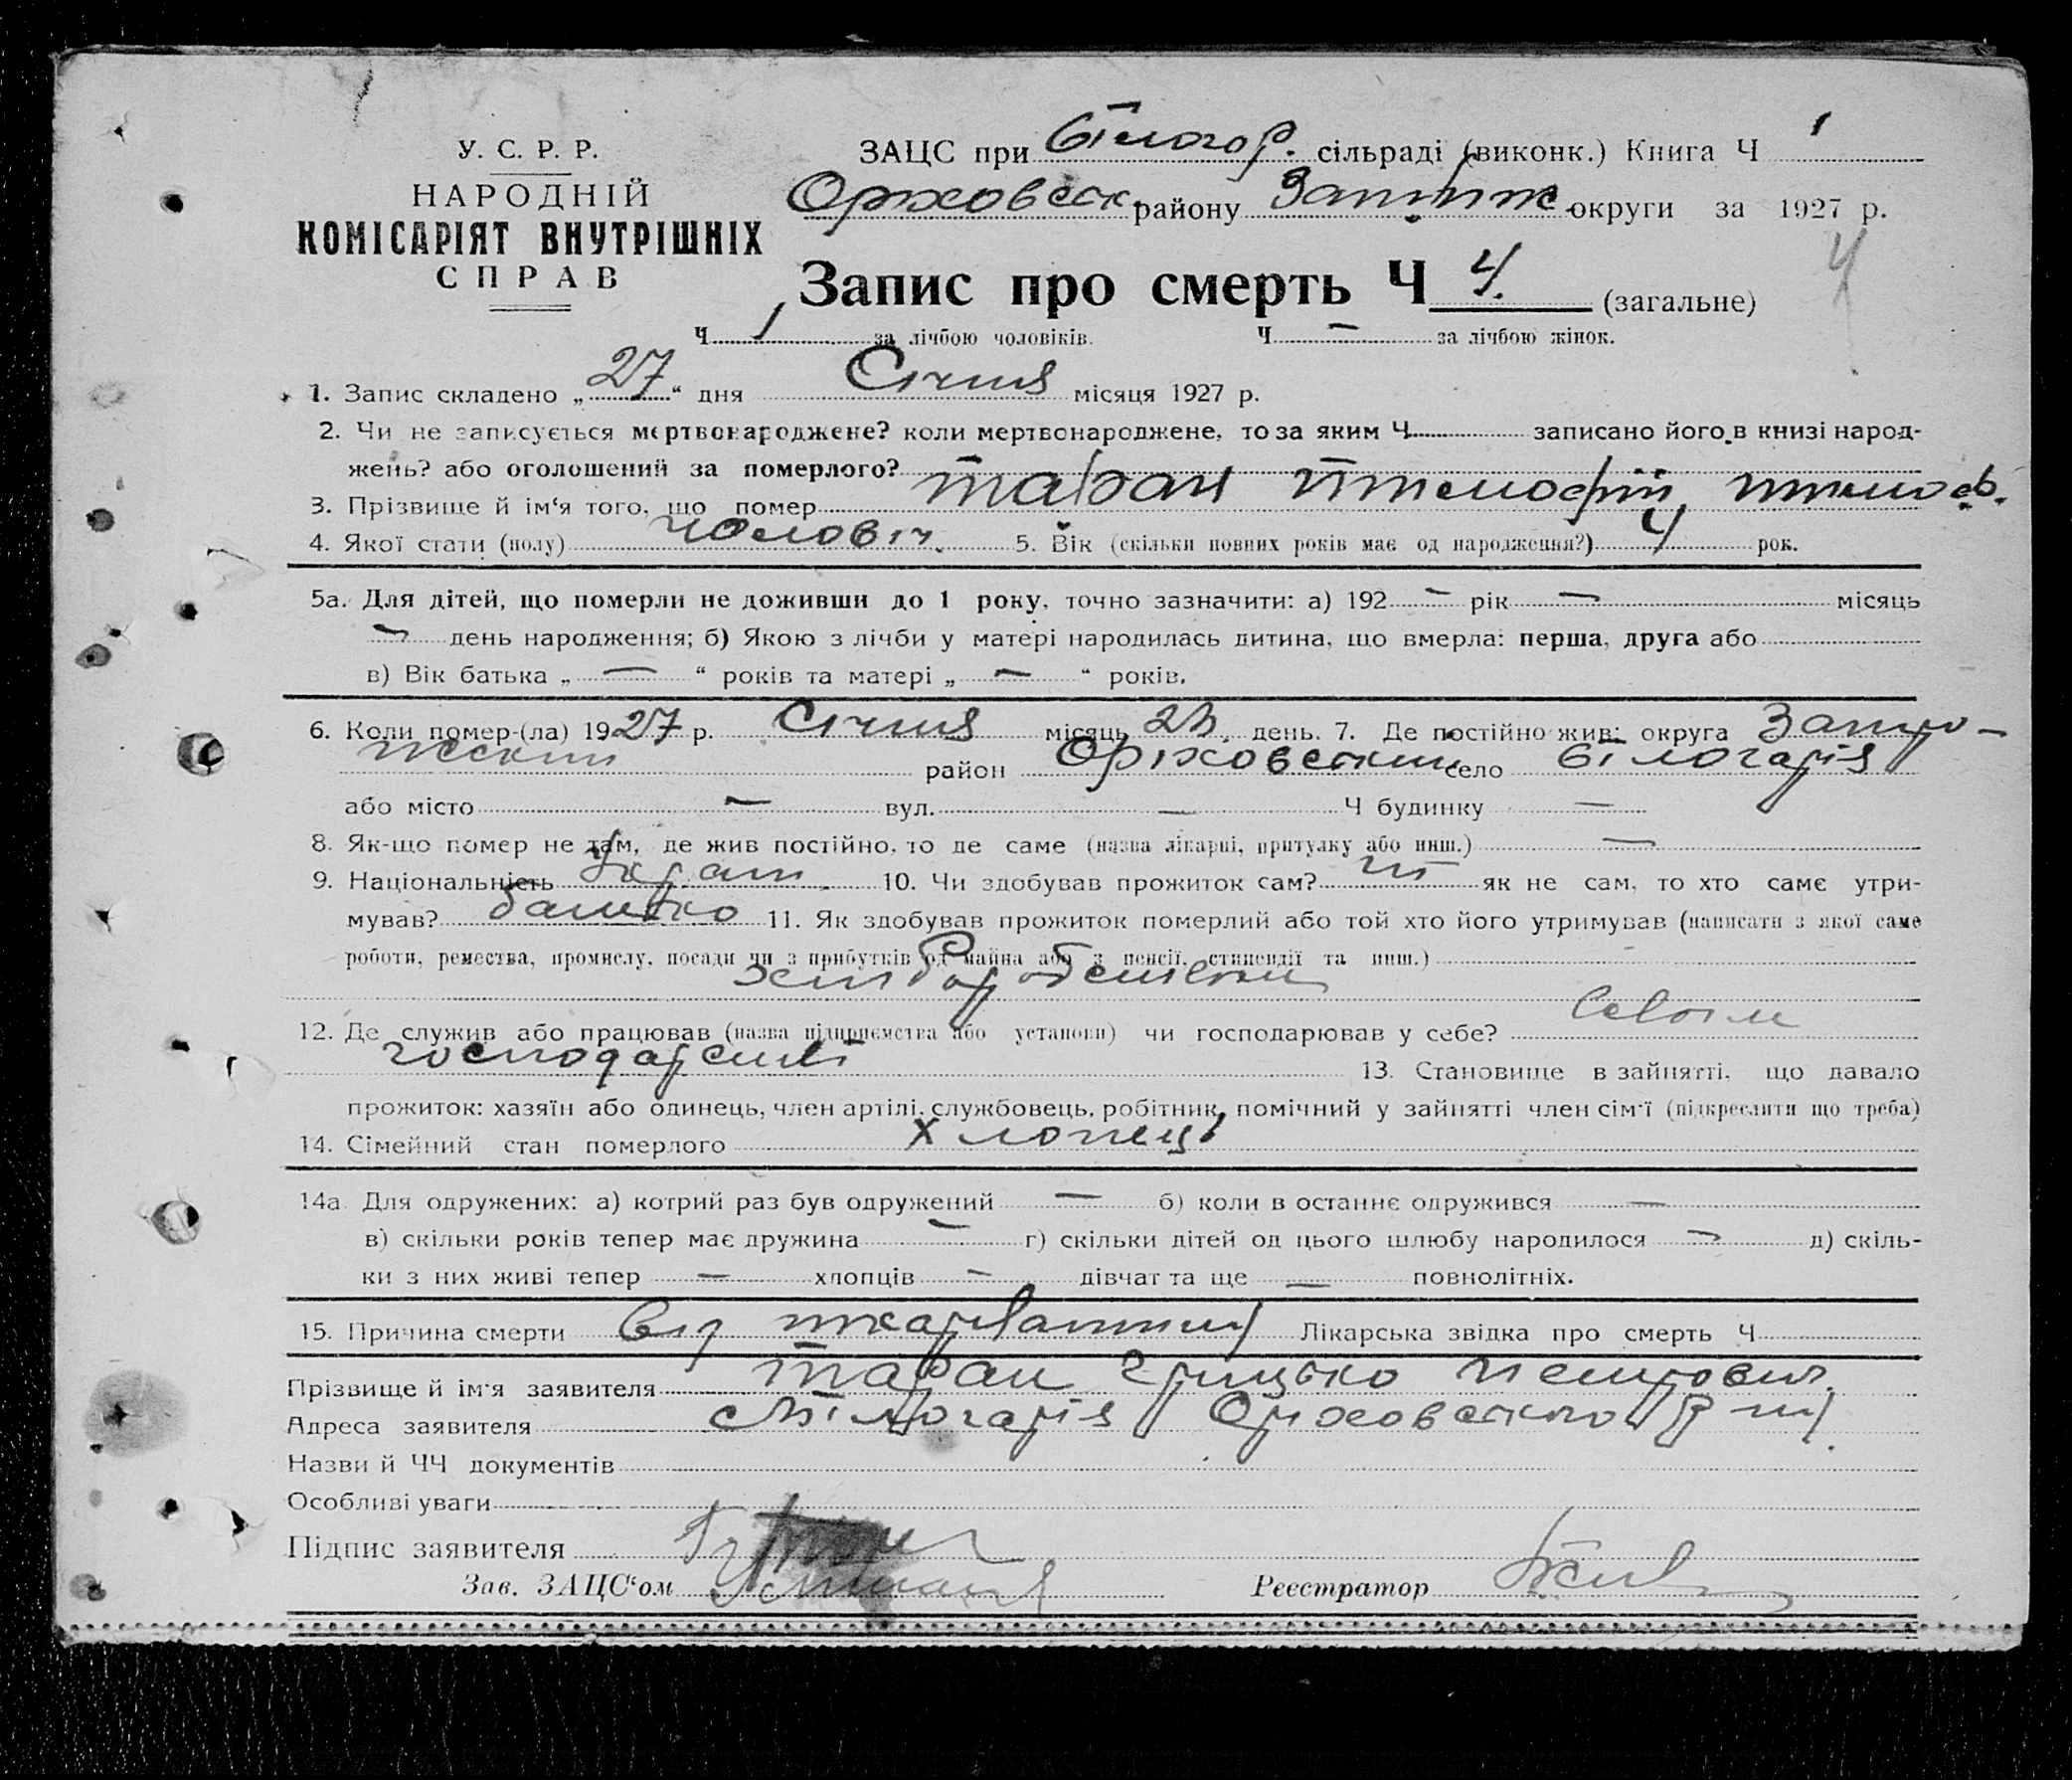 У. С. Р. Р.
НАРОДНІЙ
КОМІСАРІЯТ ВНУТРІШНІХ
СПРАВ
ЗАЦС при Білогор. сільраді (виконк.) Книга Ч 1
Оріховськ району Запоріж округи за 1927 р.
Запис про смерть Ч 4. (загальне)
4
Ч 1 за лічбою чоловіків. Ч — за лічбою жінок.
1. Запис складено „27“ дня Січня місяця 1927 р.
2. Чи не записується мертвонароджене? коли мертвонароджене, то за яким Ч записано його в книзі народ-
жень? або оголошений за померлого?
3. Прізвище й ім‘я того, що помер Таран Тимофій Тимоф.
4. Якої стати (полу) чоловіч. 5. Вік (скільки повних років має од народження?) 4 рок.
5а. Для дітей, що померли не доживши до 1 року, точно зазначити: а) 192 — рік — місяць
— день народження; б) Якою з лічби у матері народилась дитина, що вмерла: перша, друга або
в) Вік батька „ — “ років та матері „ — “ років.
6. Коли помер-(ла) 1927 р. Січня місяць 23. день. 7. Де постійно жив: округа Запро-
жский район Оріховський село Білогарія
або місто — вул. — Ч будинку —
8. Як-що помер не там, де жив постійно, то де саме (назва лікарні, притулку або инш.) —
9. Національність Украт. 10. Чи здобував прожиток сам? ні як не сам, то хто саме утри-
мував? батько 11. Як здобував прожиток померлий або той хто його утримував (написати з якої саме
роботи, ремества, промислу, посади чи з прибутків од майна або з пенсії, стипендії та инш.)
12. Де служив або працював (назва підприємства або установи) чи господарював у себе? Своїм
господарстві 13. Становище в зайнятті, що давало
прожиток: хазяїн або одинець, член артілі, службовець, робітник, помічний у зайнятті член сім‘ї (підкреслити що треба)
14. Сімейний стан померлого хлопець
14а. Для одружених: а) котрий раз був одружений — б) коли в останнє одружився —
в) скільки років тепер має дружина — г) скільки дітей од цього шлюбу народилося — д) скіль-
ки з них живі тепер — хлопців — дівчат та ще — повнолітніх.
15. Причина смерти Від шкарлатини Лікарська звідка про смерть Ч
Прізвище й ім‘я заявителя Таран Грицько Петрович.
Адреса заявителя с Білогарія Оріховського р-ну
Назви й ЧЧ документів
Особливі уваги
Підпис заявителя
Зав. ЗАЦС‘ом Реєстратор